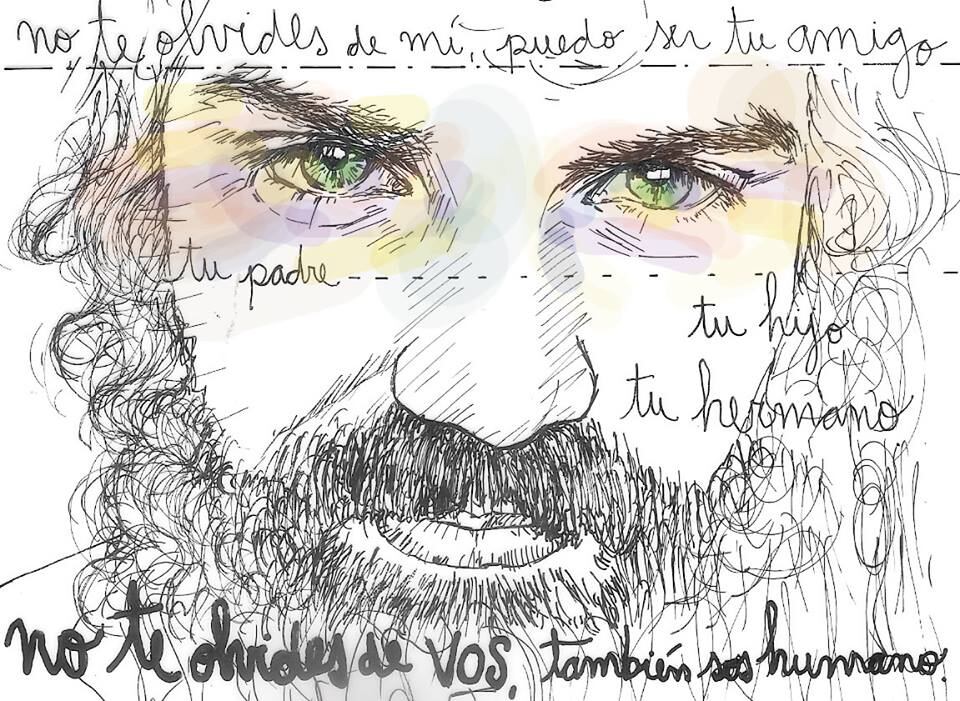 no te olvides de mí, puedo ser tu amigo
tu padre
tu hijo
tu hermano
no te olvides de vos, también sos humano.